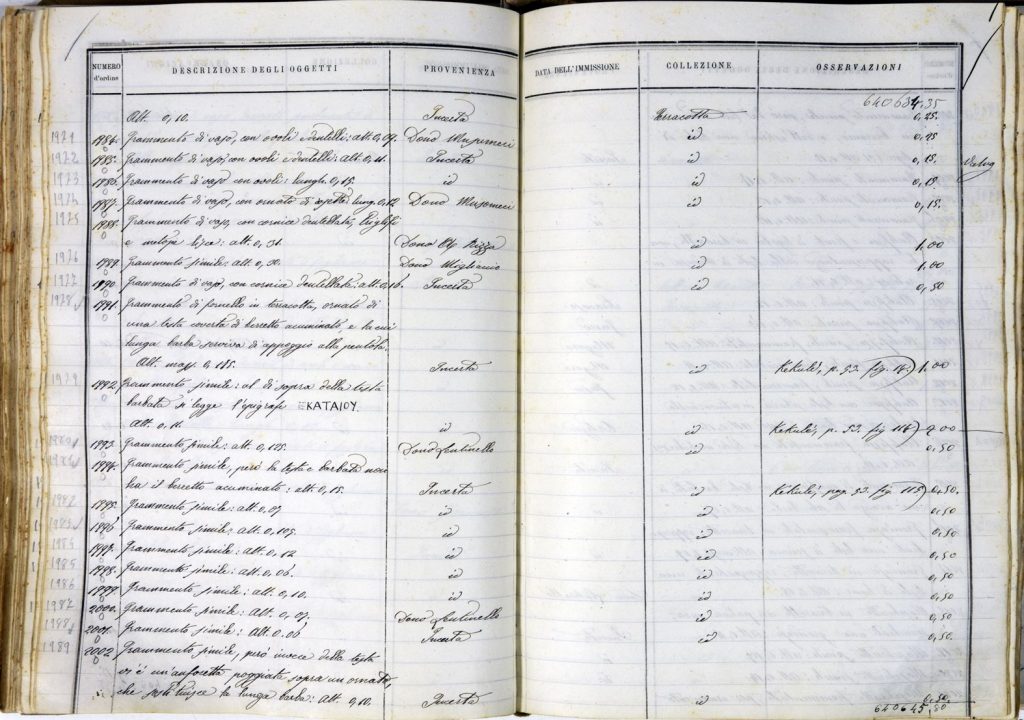 NUMERO d'ordine DESCRIZIONE DEGLI OGGETTI PROVENIENZA DATA DELL'IMMISSIONE COLLEZIONE OSSERVAZIONI
640634,35
Alt. 0,10. Incerta Terracotta 0,25.
1984. Frammento di vaso, con ovoli e dentelli: alt. 0,07. Dono Musumeci id 0,25
1985. Frammento di vaso, con ovoli e dentelli: alt. 0,11. Incerta id 0,15.
1986. Frammento di vaso con ovoli: lungh. 0,15. id id 0,15.
1987. Frammento di vaso, con ornato di lung. 0,12 Dono Musumeci id 0,15.
1988. Frammento di vaso, con cornice dentellata,
e metope lisce: alt. 0,31. Dono Rizza id 1,00
1989. Frammento simile: alt. 0,30. Dono Migliaccio id 1,00
1990. Frammento di vaso, con cornice dentellata: alt. 0,16. Incerta id 0,50
1991. Frammento di fornello in terracotta, ornato di
una testa coverta di berretto acuminato, e la cui
lunga barba serviva di appoggio alla pentola.
Alt. mass. 0,185. Incerta id Kekulè, p. 53. fig. 1,00
1992. Frammento simile: al di sopra della testa
barbata si legge l'epigrafe ΕΚΑΤΑΙΟΥ.
Alt. 0,11. id id Kekulè, p. 53. fig 116) 2,00
1993. Frammento simile: alt. 0,125. Dono Lentinello id 0,50
1994. Frammento simile, però la testa è barbata non
ha il berretto acuminato: alt. 0,15. Incerta id Kekulè, pag. 53. fig. 115) 0,50.
1995. Frammento simile: alt. 0,07 id id 0,50
1996 Frammento simile: alt. 0,105. id id 0,50.
1997. Frammento simile: alt. 0,12 id id 0,50
1998. Frammento simile: alt. 0,06. id id 0,50
1999. Frammento simile: alt. 0,10. id id 0,50
2000. Frammento simile: alt. 0,07. Dono Lentinello id 0,50
2001. Frammento simile: alt. 0,06 Incerta id 0,50.
2002. Frammento simile, però invece della testa
vi è un'anforetta poggiata sopra un ornato,
che sostituisce la lunga barba: alt. 0,10. Incerta id 0,50.
640645,80
1921
1922
1923
1924
1925
1926
1927
1928
1929
1980
1982
1983
1984
1985
1986
1987
1988
1989